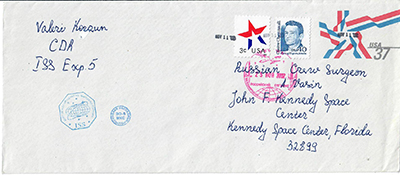 Valeri Korzun
CDR
ISS Exp. 5
NOV
3c USA
40
USA
37
Russian Crew Surgeon
John F. Kennedy Space
Center
Kennedy Space Center, Florida
32899
ISS